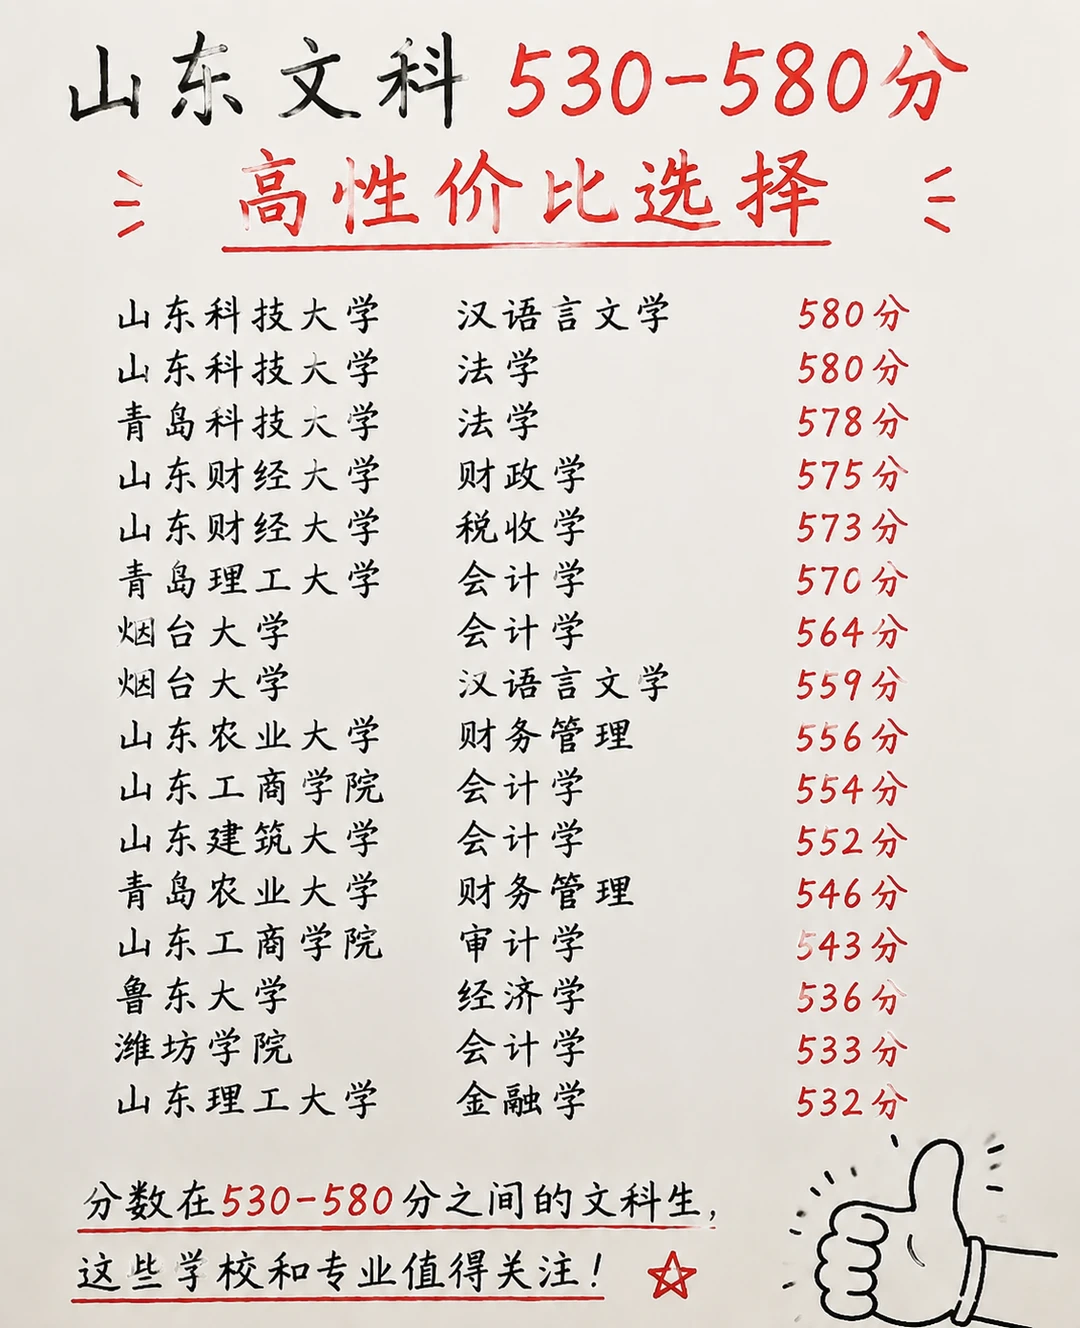 山东文科 530-580分
高性价比选择
山东科技大学 汉语言文学 580分
山东科技大学 法学 580分
青岛科技大学 法学 578分
山东财经大学 财政学 575分
山东财经大学 税收学 573分
青岛理工大学 会计学 570分
烟台大学 会计学 564分
烟台大学 汉语言文学 559分
山东农业大学 财务管理 556分
山东工商学院 会计学 554分
山东建筑大学 会计学 552分
青岛农业大学 财务管理 546分
山东工商学院 审计学 543分
鲁东大学 经济学 536分
潍坊学院 会计学 533分
山东理工大学 金融学 532分
分数在530-580分之间的文科生,
这些学校和专业值得关注!